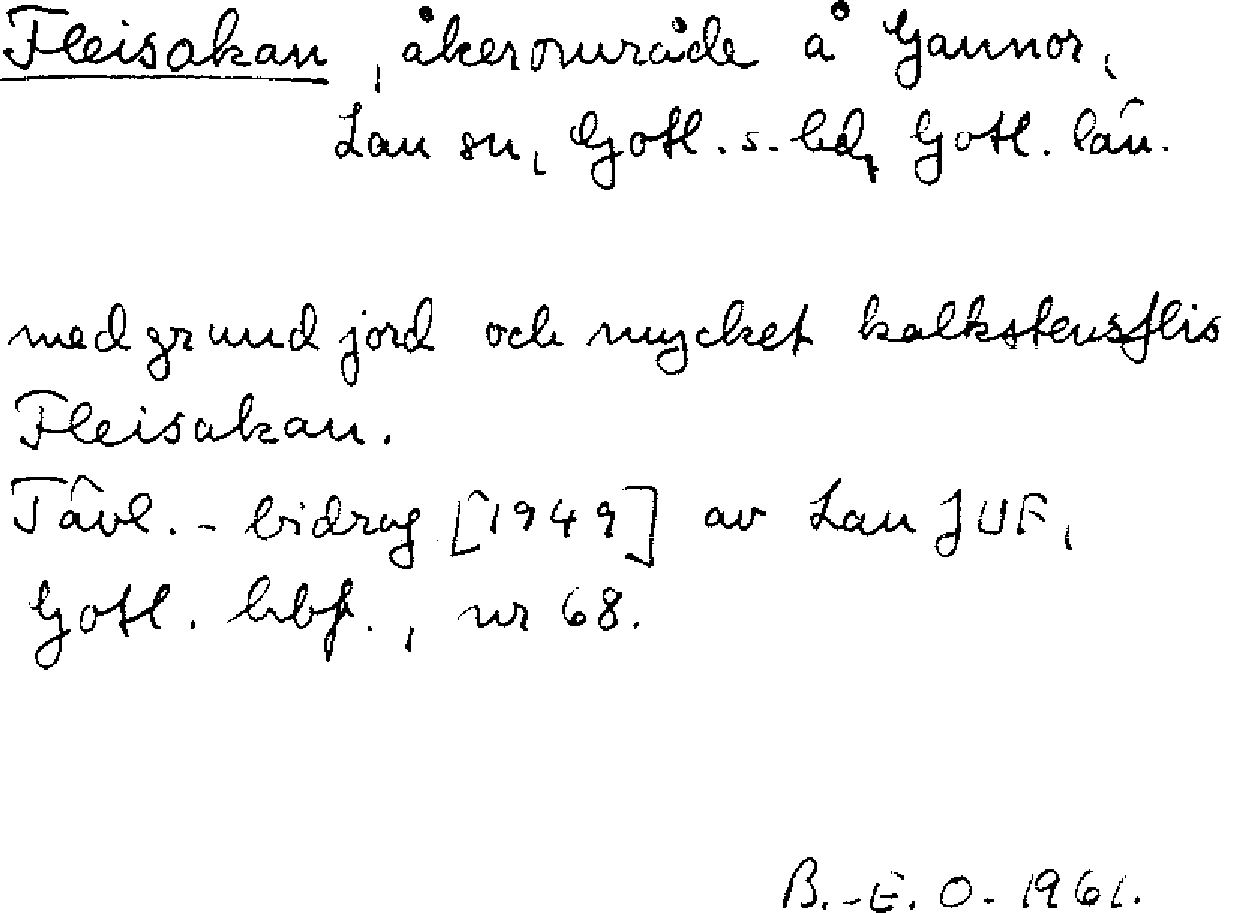 Fleisakan, åkerområde å Gannor,
Lau sn, Gotl. s. hd, Gotl. län.
med grund jord och mycket kalkstensflis
Fleisakan.
Tävl.-bidrag [1949] av Lau JUF,
Gotl. hbf., nr 68.
B.-E. O. 1961.